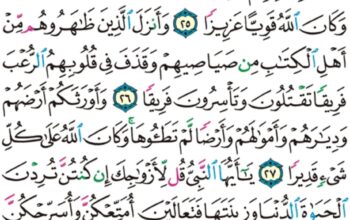 وَكَانَ ٱللَّهُ قَوِيًّا عَزِيزًا ٢٥ وَأَنزَلَ ٱلَّذِينَ ظَـٰهَرُوهُم مِّنْ
أَهْلِ ٱلْكِتَـٰبِ مِن صَيَاصِيهِمْ وَقَذَفَ فِى قُلُوبِهِمُ ٱلرُّعْبَ
فَرِيقًا تَقْتُلُونَ وَتَأْسِرُونَ فَرِيقًا ٢٦ وَأَوْرَثَكُمْ أَرْضَهُمْ
وَدِيَـٰرَهُمْ وَأَمْوَٰلَهُمْ وَأَرْضًا لَّمْ تَطَـُٔوهَا ۚ وَكَانَ ٱللَّهُ عَلَىٰ كُلِّ
شَىْءٍ قَدِيرًا ٢٧ يَـٰٓأَيُّهَا ٱلنَّبِىُّ قُل لِّأَزْوَٰجِكَ إِن كُنتُنَّ تُرِدْنَ
ٱلْحَيَوٰةَ ٱلدُّنْيَا وَزِينَتَهَا فَتَعَالَيْنَ أُمَتِّعْكُنَّ وَأُسَرِّحْكُنَّ